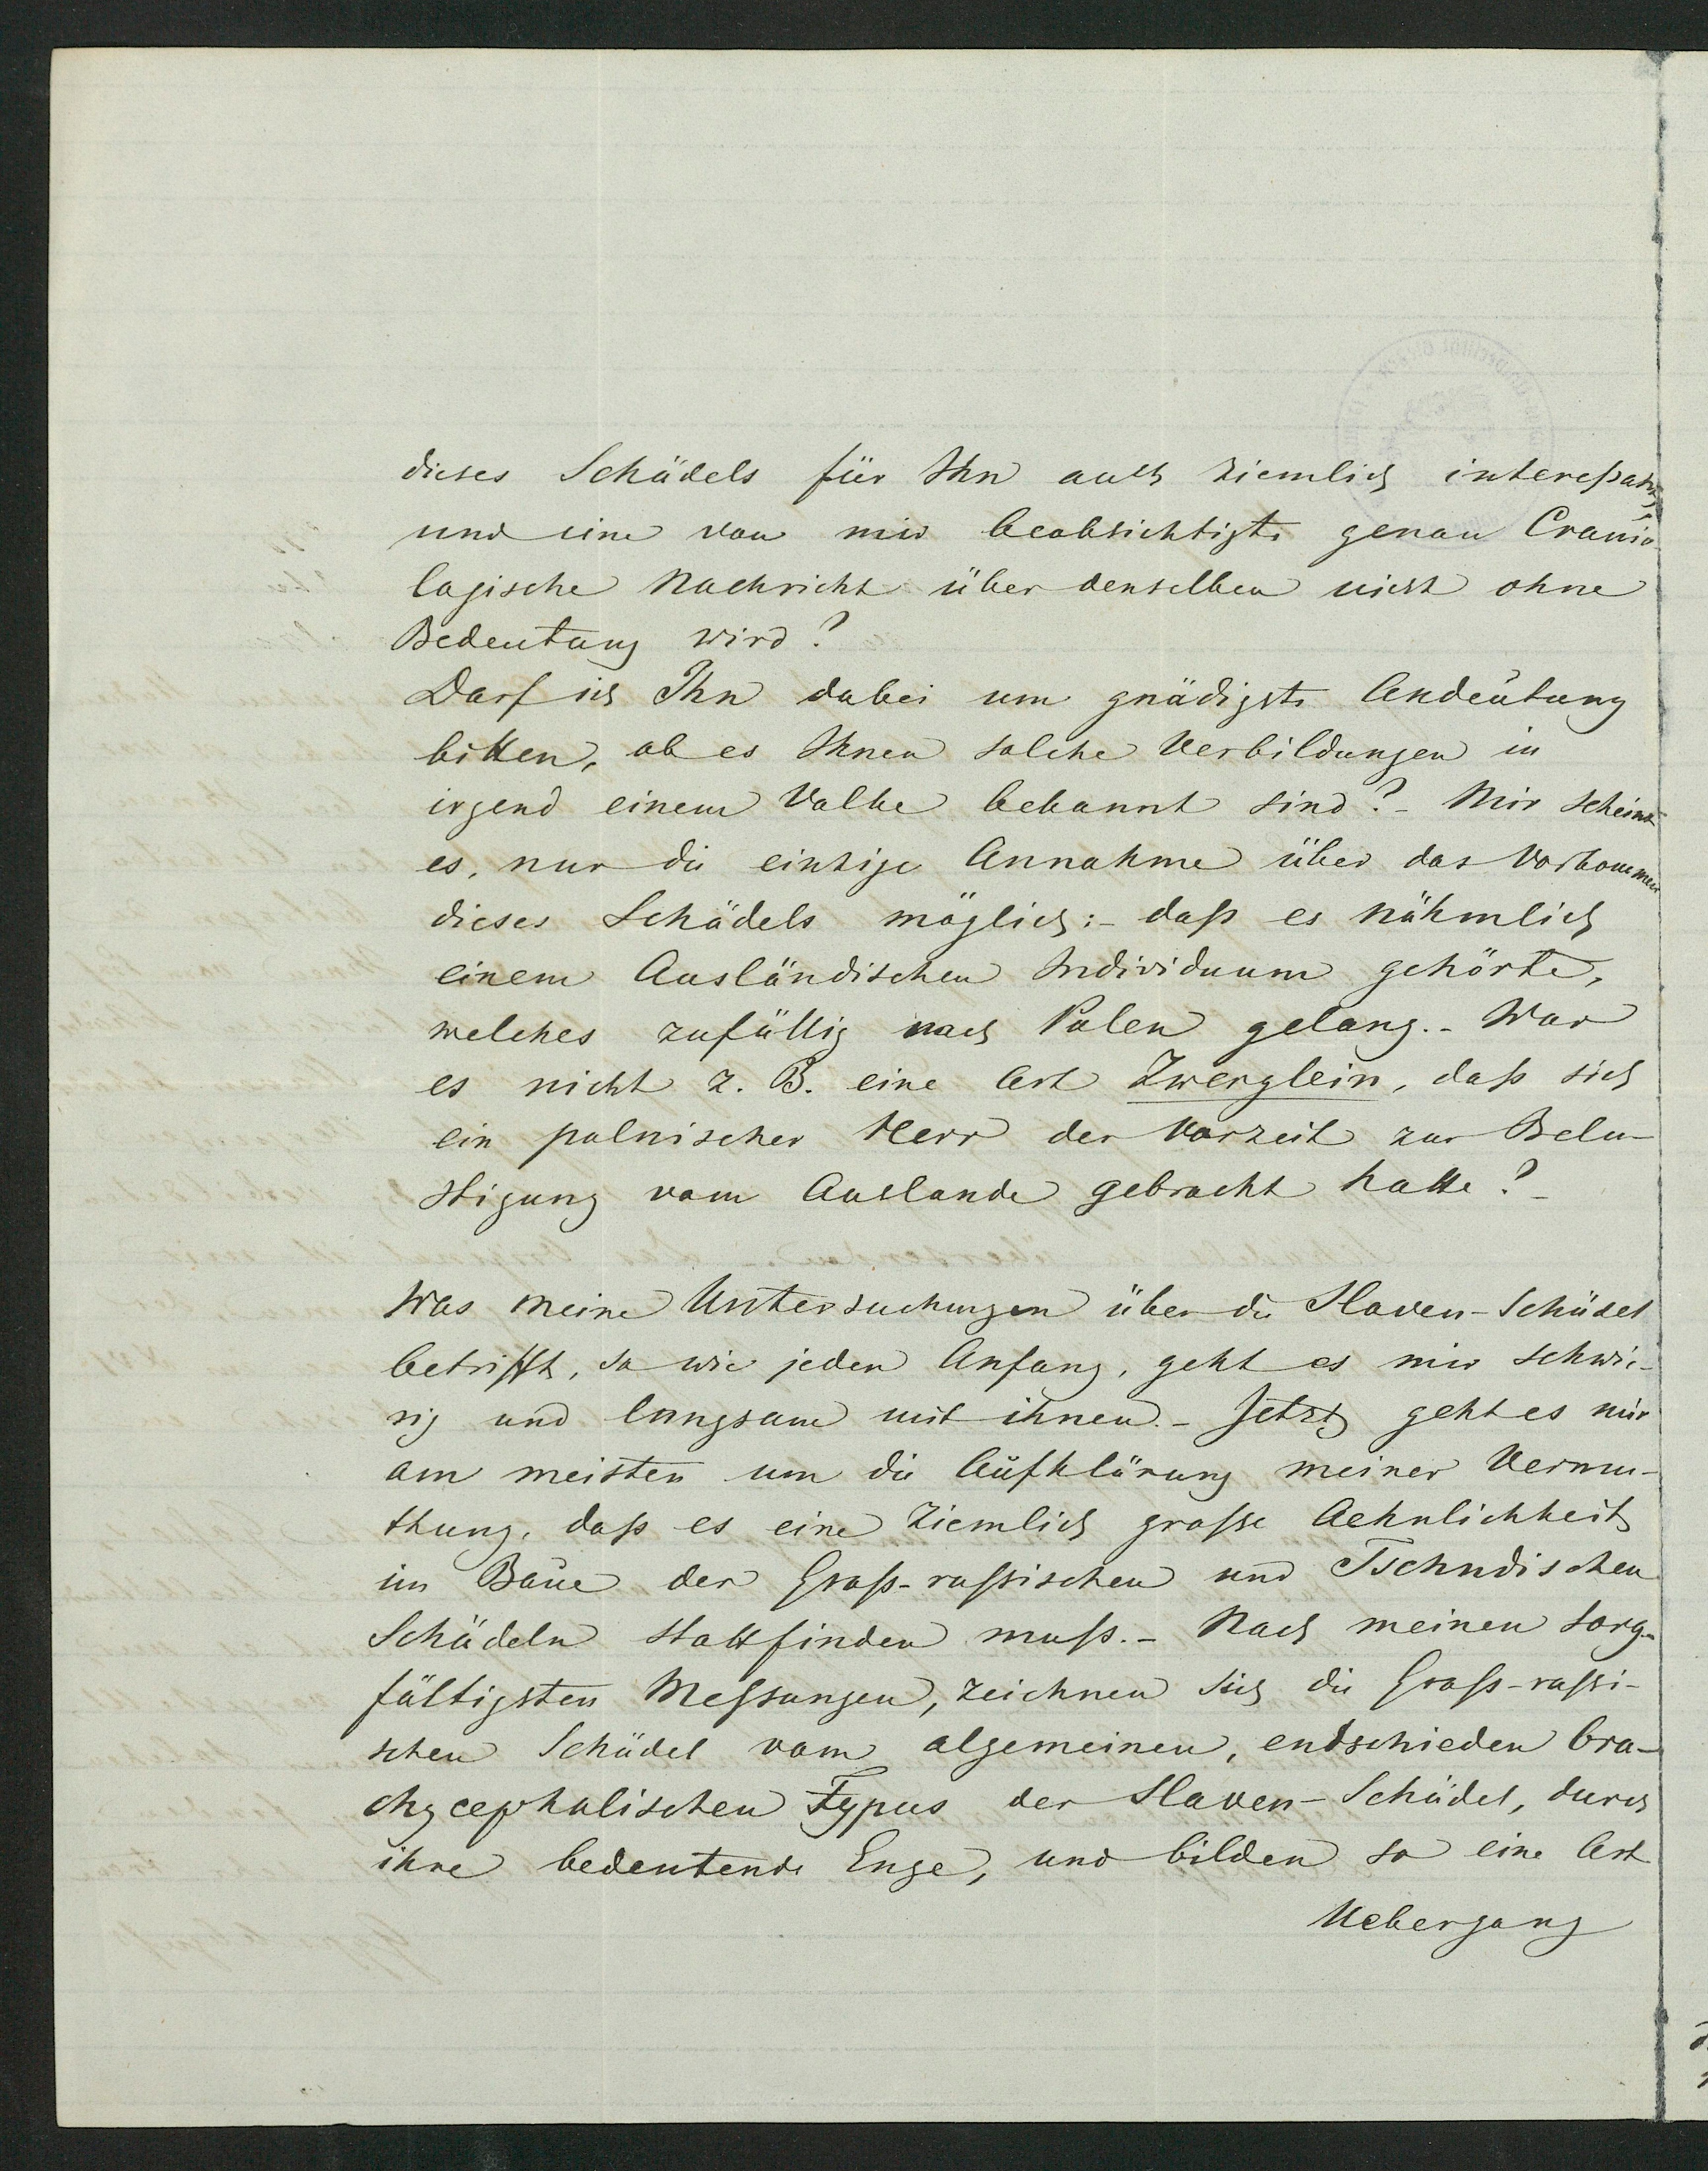 dieses Schädels für Ihn auch ziemlich interessant,
und eine von mir beabsichtigte genau Cranio
logische Nachricht über denselben nicht ohne
Bedeutung wird?
Darf ich Ihn dabei um gnädigste Andeutung
bitten, ob es Ihnen solche Verbildungen in
irgend einem Volke bekannt sind? - Mir scheint
es, nur die eintzige Annahme über das Vorkommen
dieses Schädels möglich: - daß es nähmlich
einem Ausländischen Individuum gehörte,
welches zufällig nach Polen gelang. - War
es nicht z. B. eine Art Zwerglein, daß sich
ein polnischer Herr der Vorzeit zur Belu-
stigung vom Auslande gebracht hatte? -
Was meine Untersuchungen über die Slaven-Schädel
betrifft, so wie jeden Anfang, geht es mir schwie-
rig und langsam mit ihnen. - Jetzt geht es mir
am meisten um die Aufklärung meiner Vermu-
thung, daß es eine ziemlich große Aehnlichkeit
im Baue der Groß-russischen und Tschudischen
Schädeln stattfinden muß. - Nach meinen sorg-
fältigsten Messungen, zeichnen sich die Groß-russi-
schen Schädel vom algemeinen, endschieden bra-
chycephalischen Typus der Slaven-Schädel, durch
ihre bedeutende Enge, und bilden so eine Art
Uebergang